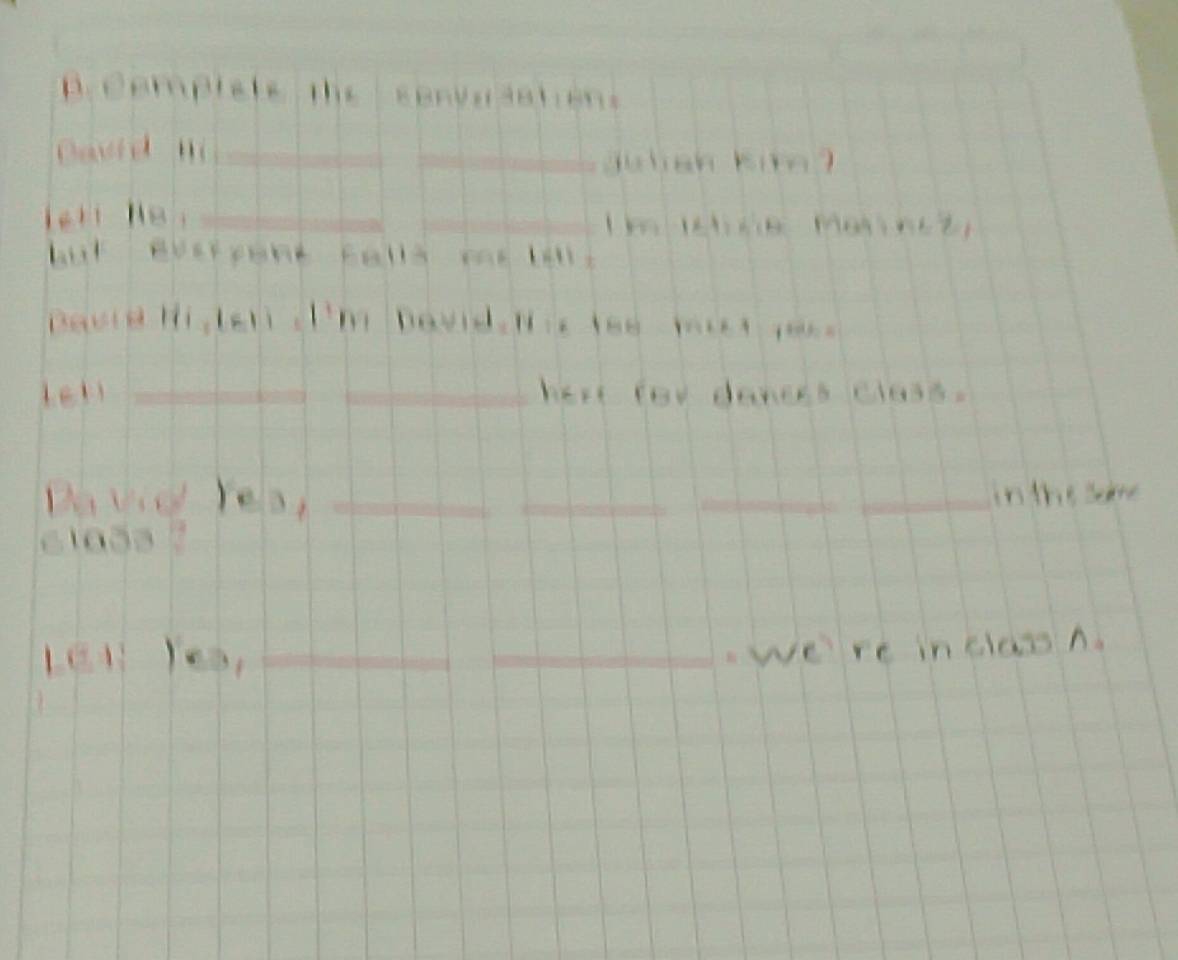 B. Complete the conversation.
David Hi ____ ____ Julian Kim?
Leti No, ____ ____ I'm Leticia Martinez,
but everyone calls me Leti.
David Hi, Leti. I'm David. Nice too meet you.
Leti ____ ____ here for dances class.
David Yes, ____ ____ ____ ____ in the same
class?
Leti Yes, ____ ____. We're in class A.